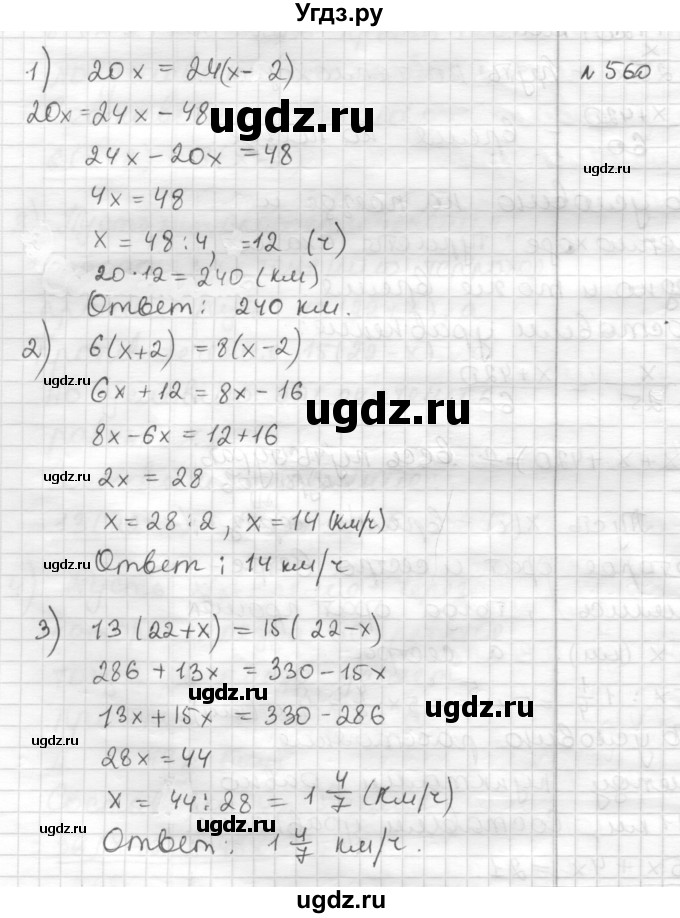 Угдз.ру
1) 20x = 24(x - 2)
№ 560
20x = 24x - 48
ugdz.ru
24x - 20x = 48
ugdz.ru
4x = 48
x = 48 : 4, = 12 (ч)
20 · 12 = 240 (км)
Ответ: 240 км.
2) 6(x+2) = 8(x-2)
ugdz.ru
6x + 12 = 8x - 16
ugdz.ru
8x - 6x = 12 + 16
ugdz.ru
2x = 28
x = 28 : 2, x = 14 (км/ч)
ugdz.ru
Ответ: 14 км/ч
3) 13 (22+x) = 15 (22-x)
286 + 13x = 330 - 15x
ugdz.ru
13x + 15x = 330 - 286
ugdz.ru
ugdz.ru
28x = 44
x = 44 : 28 = 1 4/7 (км/ч)
ugdz.ru
ugdz.ru
Ответ: 1 4/7 км/ч.
ugdz.ru